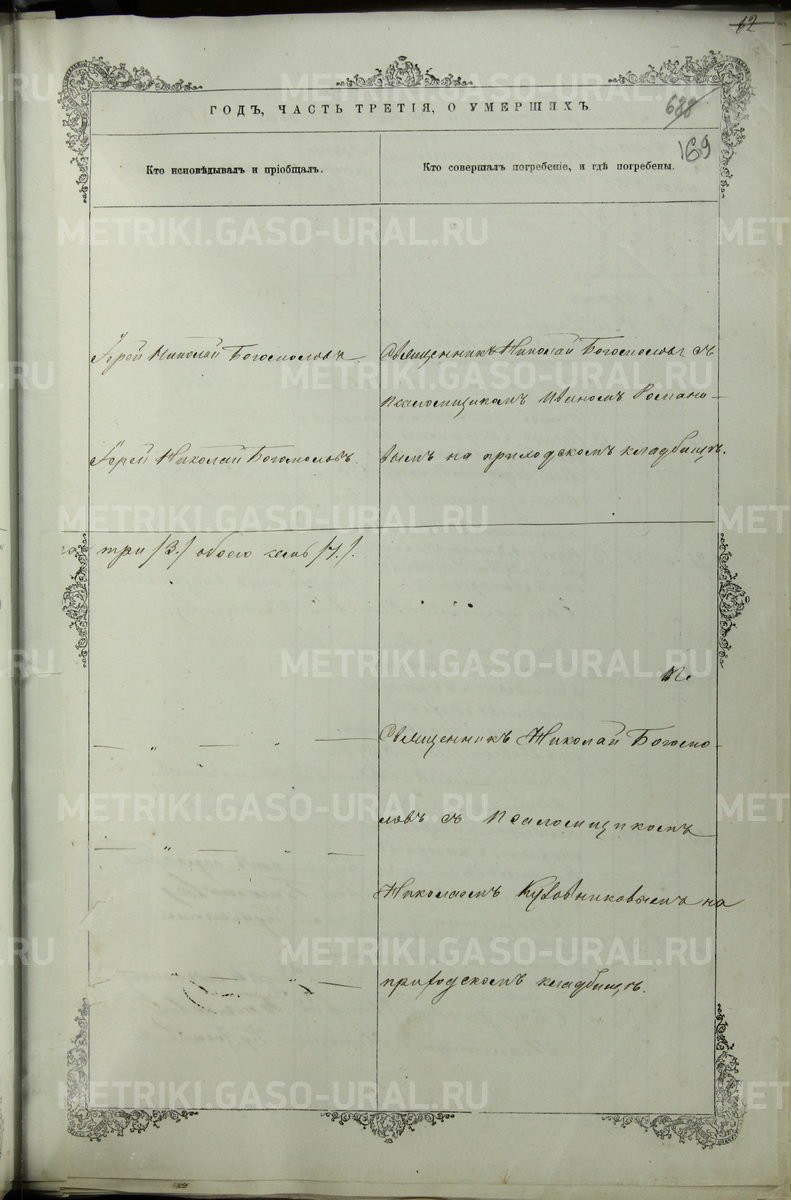 62
ГОДЪ, ЧАСТЬ ТРЕТІЯ, О УМЕРШИХЪ
688
169
Кто исповѣдывалъ и пріобщалъ.
Кто совершалъ погребеніе, и гдѣ погребены.
Іерей Николай Богословъ
Священникъ Николай Богословъ съ
псаломщикомъ Иваномъ Романо-
Іерей Николай Богословъ.
вымъ на приходскомъ кладбищѣ.
три /3./ обоего семь /7./.
Священникъ Николай Богосло-
ловъ съ псаломщикомъ
Николаемъ на
приходскомъ кладбищѣ.
METRIKI.GASO-URAL.RU